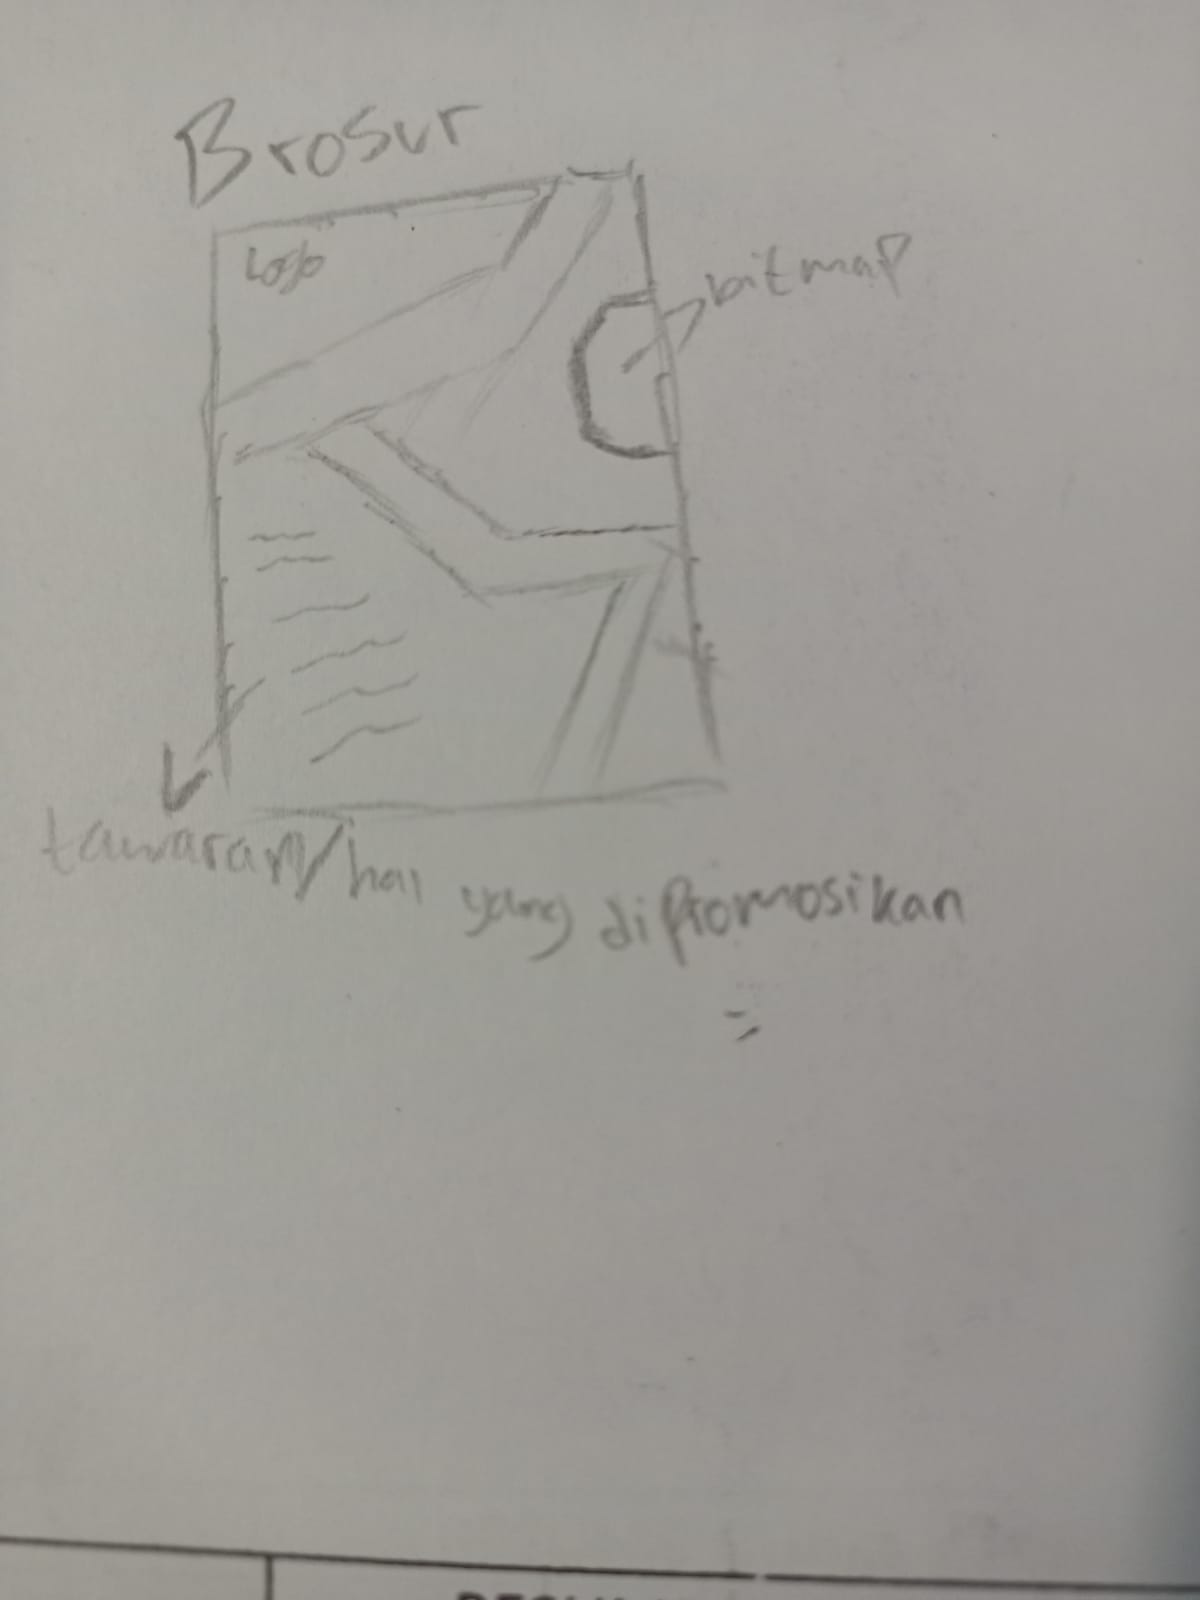 Brosur
Logo
bitmap
tawaran/hal yang dipromosikan